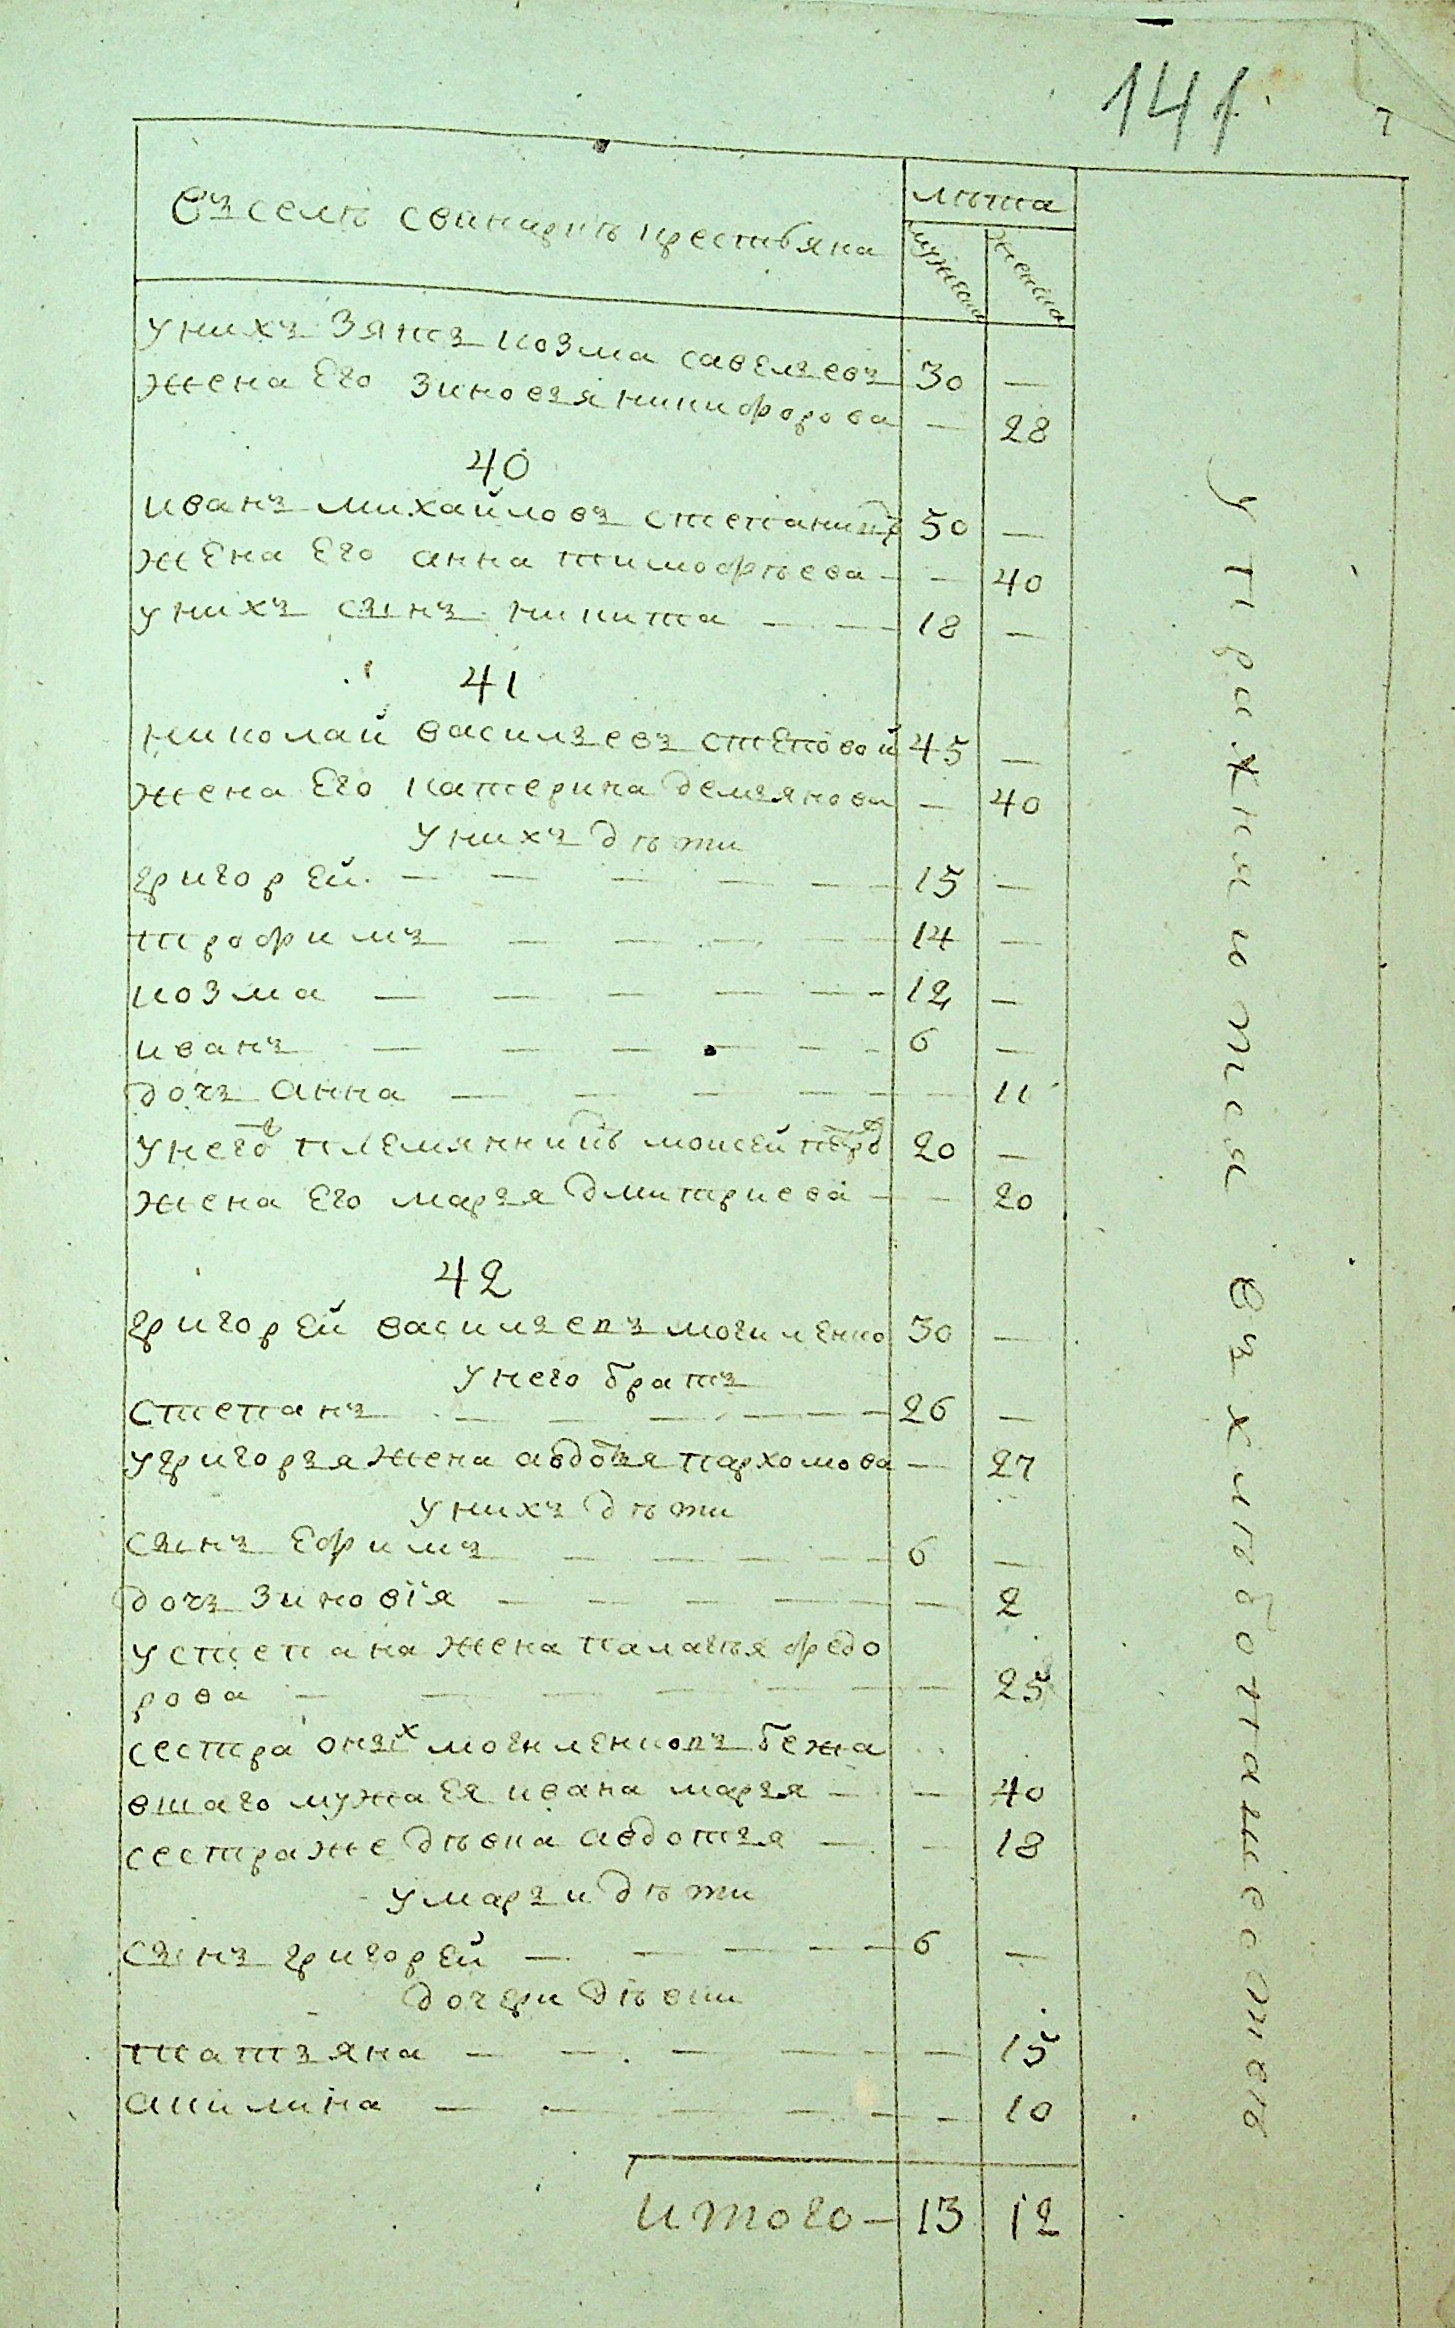 141
въ селѣ свинарнѣ крестьяна
лѣта
мужеска
женска
у нихъ зять козма савельевъ 30 —
жена его зиновья никифорова — 28
40
иванъ михайловъ степани 50 —
жена его анна тимофѣева — — 40
у нихъ сынъ никита — — 18 —
41
николай васильевъ степовой 45 —
жена его катерина демьянова — 40
у нихъ дѣти
григорей — — — — — 15 —
трофимъ — — — — — 14 —
козма — — — — — 12 —
иванъ — — — — — 6 —
дочь анна — — — — — 11
у него племянникъ моисей петров 20 —
жена его марья дмитриева — — 20
42
григорей васильевъ могиленко 30 —
у него братъ
степанъ — — — — — 26 —
у григорья жена авдотья пархомова — 27
у нихъ дѣти
сынъ ефимъ — — — — 6 —
дочь зиновія — — — — — 2
у степана жена палагѣя федо
рова — — — — — — 25
сестра оныхъ могиленковъ бежа
вшаго мужа ея ивана марья — — 40
сестра же дѣвка авдотья — — 18
у марьи дѣти
сынъ григорей — — — — 6 —
дочери дѣвки
татьяна — — — — — 15
акилина — — — — — — 10
итого — 13 12
упражняются въ хлѣбопашествѣ